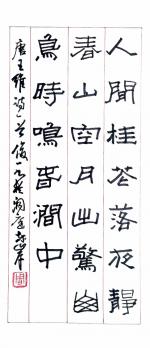 人閒桂花落夜靜
春山空月出驚幽
鳥時鳴春澗中
唐王維詩一首